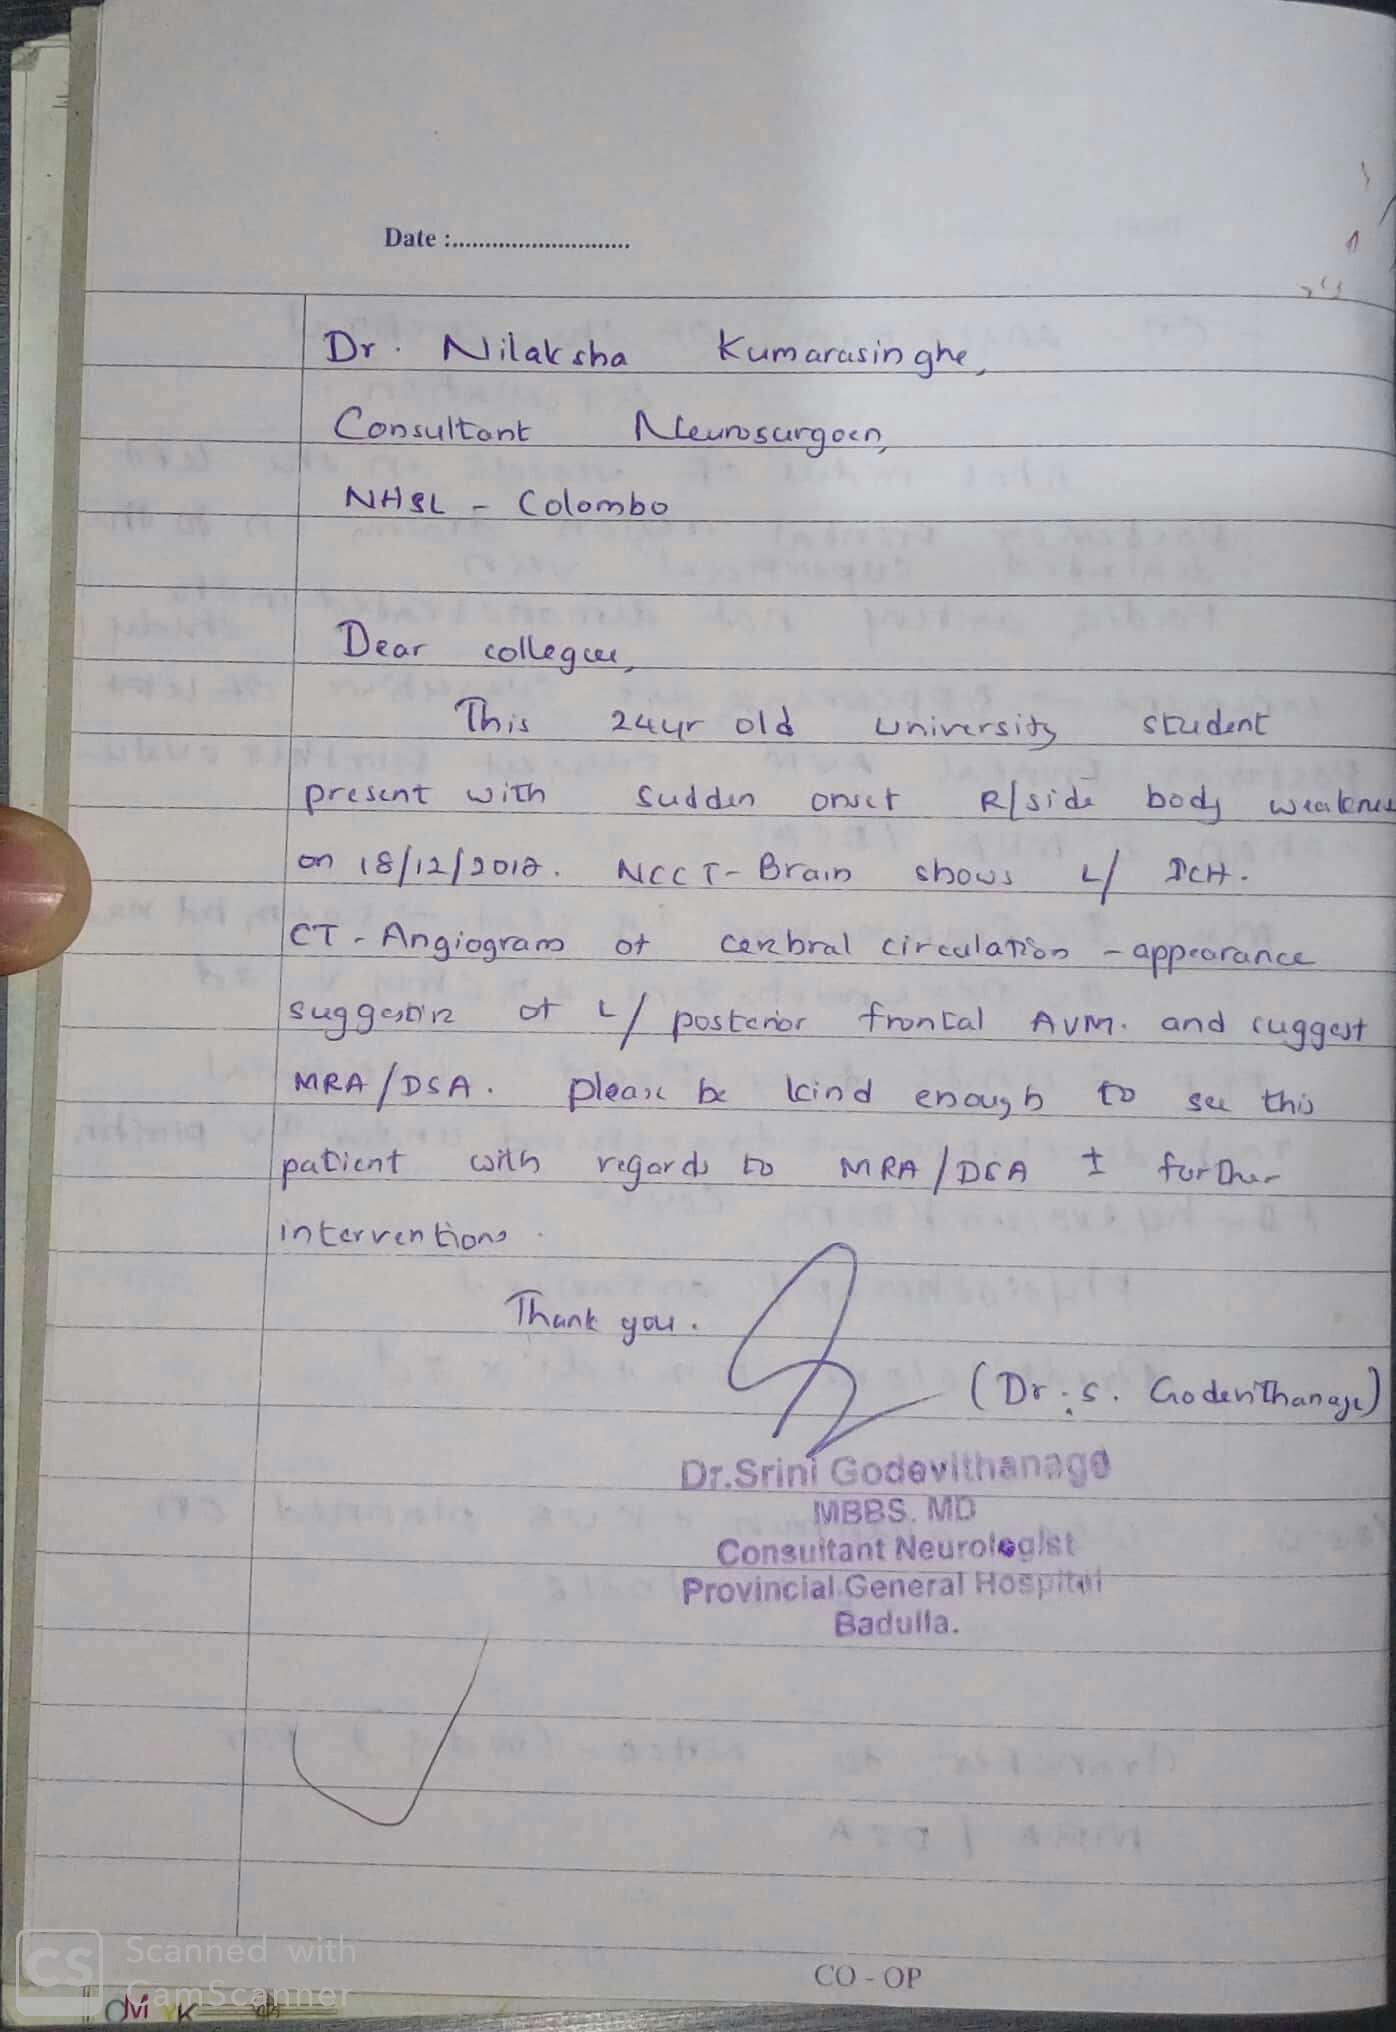 Date :............................
Dr. Nilaksha Kumarasinghe,
Consultant Neurosurgoen,
NHSL - Colombo
Dear collegue,
This 24yr old university student
present with sudden onset R/side body weakness
on 18/12/2018. NCCT- Brain shows L/ ICH.
CT - Angiogram of cerebral circulation - appearance
suggestive of L/ posterior frontal AVM. and suggest
MRA/DSA. please be kind enough to see this
patient with regards to MRA/DSA ± further
interventions.
Thank you.
(Dr. S. Godevithanage)
Dr.Srini Godevithanage
MBBS. MD
Consultant Neurologist
Provincial General Hospital
Badulla.
CO - OP
CS Scanned with
CamScanner